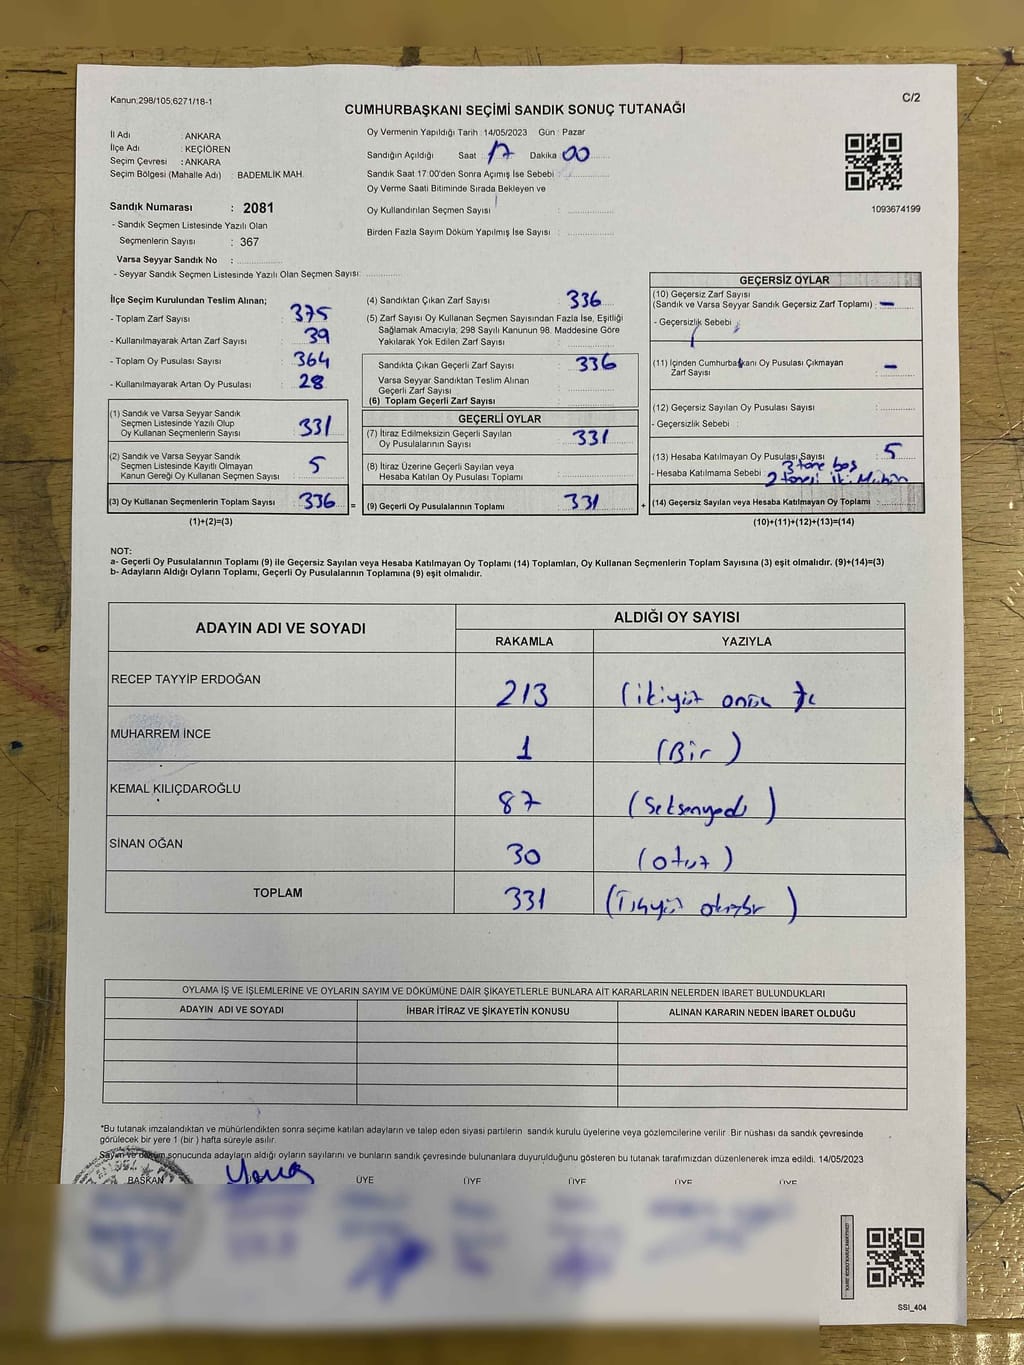 Kanun:298/105,6271/18-1
C/2
CUMHURBAŞKANI SEÇİMİ SANDIK SONUÇ TUTANAĞI
İl Adı : ANKARA
İlçe Adı : KEÇİÖREN
Seçim Çevresi : ANKARA
Seçim Bölgesi (Mahalle Adı) : BADEMLİK MAH.
Oy Vermenin Yapıldığı Tarih : 14/05/2023 Gün : Pazar
Sandığın Açıldığı Saat : 17 Dakika : 00
Sandık Saat 17:00'den Sonra Açımış İse Sebebi :
Oy Verme Saati Bitiminde Sırada Bekleyen ve
Oy Kullandırılan Seçmen Sayısı :
Birden Fazla Sayım Döküm Yapılmış İse Sayısı :
1093674199
Sandık Numarası : 2081
- Sandık Seçmen Listesinde Yazılı Olan
Seçmenlerin Sayısı : 367
Varsa Seyyar Sandık No :
- Seyyar Sandık Seçmen Listesinde Yazılı Olan Seçmen Sayısı:
İlçe Seçim Kurulundan Teslim Alınan;
- Toplam Zarf Sayısı : 375
- Kullanılmayarak Artan Zarf Sayısı : 39
- Toplam Oy Pusulası Sayısı : 364
- Kullanılmayarak Artan Oy Pusulası : 28
(1) Sandık ve Varsa Seyyar Sandık
Seçmen Listesinde Yazılı Olup
Oy Kullanan Seçmenlerin Sayısı : 331
(2) Sandık ve Varsa Seyyar Sandık
Seçmen Listesinde Kayıtlı Olmayan
Kanun Gereği Oy Kullanan Seçmen Sayısı : 5
(3) Oy Kullanan Seçmenlerin Toplam Sayısı : 336 =
(1)+(2)=(3)
(4) Sandıktan Çıkan Zarf Sayısı : 336
(5) Zarf Sayısı Oy Kullanan Seçmen Sayısından Fazla İse, Eşitliği
Sağlamak Amacıyla; 298 Sayılı Kanunun 98. Maddesine Göre
Yakılarak Yok Edilen Zarf Sayısı :
Sandıkta Çıkan Geçerli Zarf Sayısı : 336
Varsa Seyyar Sandıktan Teslim Alınan
Geçerli Zarf Sayısı :
(6) Toplam Geçerli Zarf Sayısı :
GEÇERLİ OYLAR
(7) İtiraz Edilmeksizin Geçerli Sayılan
Oy Pusulalarının Sayısı : 331
(8) İtiraz Üzerine Geçerli Sayılan veya
Hesaba Katılan Oy Pusulası Toplamı :
(9) Geçerli Oy Pusulalarının Toplamı : 331 +
GEÇERSİZ OYLAR
(10) Geçersiz Zarf Sayısı
(Sandık ve Varsa Seyyar Sandık Geçersiz Zarf Toplamı) : –
- Geçersizlik Sebebi :
(11) İçinden Cumhurbaşkanı Oy Pusulası Çıkmayan
Zarf Sayısı : –
(12) Geçersiz Sayılan Oy Pusulası Sayısı :
- Geçersizlik Sebebi :
(13) Hesaba Katılmayan Oy Pusulası Sayısı : 5
- Hesaba Katılmama Sebebi : 3 tane boş
2 tanesi iki Mühür
(14) Geçersiz Sayılan veya Hesaba Katılmayan Oy Toplamı :
(10)+(11)+(12)+(13)=(14)
NOT:
a- Geçerli Oy Pusulalarının Toplamı (9) ile Geçersiz Sayılan veya Hesaba Katılmayan Oy Toplamı (14) Toplamları, Oy Kullanan Seçmenlerin Toplam Sayısına (3) eşit olmalıdır. (9)+(14)=(3)
b- Adayların Aldığı Oyların Toplamı, Geçerli Oy Pusulalarının Toplamına (9) eşit olmalıdır.
ADAYIN ADI VE SOYADI
ALDIĞI OY SAYISI
RAKAMLA YAZIYLA
RECEP TAYYİP ERDOĞAN 213 (ikiyüz onüç
MUHARREM İNCE 1 (Bir)
KEMAL KILIÇDAROĞLU 87 (Seksenyedi)
SİNAN OĞAN 30 (otuz)
TOPLAM 331
OYLAMA İŞ VE İŞLEMLERİNE VE OYLARIN SAYIM VE DÖKÜMÜNE DAİR ŞİKAYETLERLE BUNLARA AİT KARARLARIN NELERDEN İBARET BULUNDUKLARI
ADAYIN ADI VE SOYADI İHBAR İTİRAZ VE ŞİKAYETİN KONUSU ALINAN KARARIN NEDEN İBARET OLDUĞU
*Bu tutanak imzalandıktan ve mühürlendikten sonra seçime katılan adayların ve talep eden siyasi partilerin sandık kurulu üyelerine veya gözlemcilerine verilir. Bir nüshası da sandık çevresinde
görülecek bir yere 1 (bir) hafta süreyle asılır.
Sayım ve döküm sonucunda adayların aldığı oyların sayılarını ve bunların sandık çevresinde bulunanlara duyurulduğunu gösteren bu tutanak tarafımızdan düzenlenerek imza edildi. 14/05/2023
BAŞKAN ÜYE ÜYE ÜYE ÜYE ÜYE ÜYE
SSİ_404